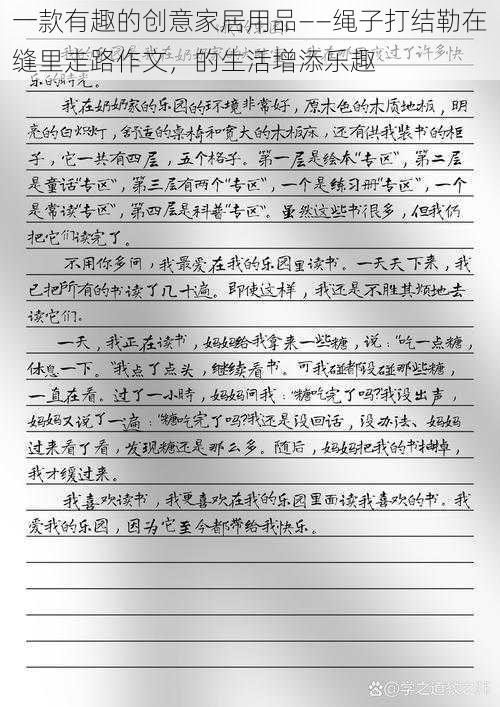 一款有趣的创意家居用品——绳子打结勒在
缝里走路作文，的生活增添乐趣
我的乐园
过了许多快
乐的时光。
我在奶奶家的乐园的环境非常好，原木色的木质地板，明
亮的白炽灯，舒适的桌椅和宽大的木板床，还有供我装书的柜
子，它一共有四层，五个格子。第一层是绘本“专区”，第二层
是童话“专区”，第三层有两个“专区”，一个是练习册“专区”，一个
是常读“专区”，第四层是科普“专区”。虽然这些书很多，但我仍
把它们读完了。
不用你多问，我最爱在我的乐园里读书。一天天下来，我
已把所有的书读了几十遍。即使这样，我还是不胜其烦地去
读它们。
一天，我正在读书，妈妈给我拿来一些糖，说：“吃一点糖，
休息一下。”我点了点头，继续看书。可我碰都没碰那些糖，
一直在看。过了一小時，妈妈问我：“糖吃完了吗？”我没出声，
妈妈又说了一遍：“糖吃完了吗？”我还是没回话，没办法、妈妈
过来看了看，发现糖还是那么多。随后，妈妈把我的书抽掉，
我才缓过来。
我喜欢读书，我更喜欢在我的乐园里面读我喜欢的书。我
爱我的乐园，因为它至今都带给我快乐。